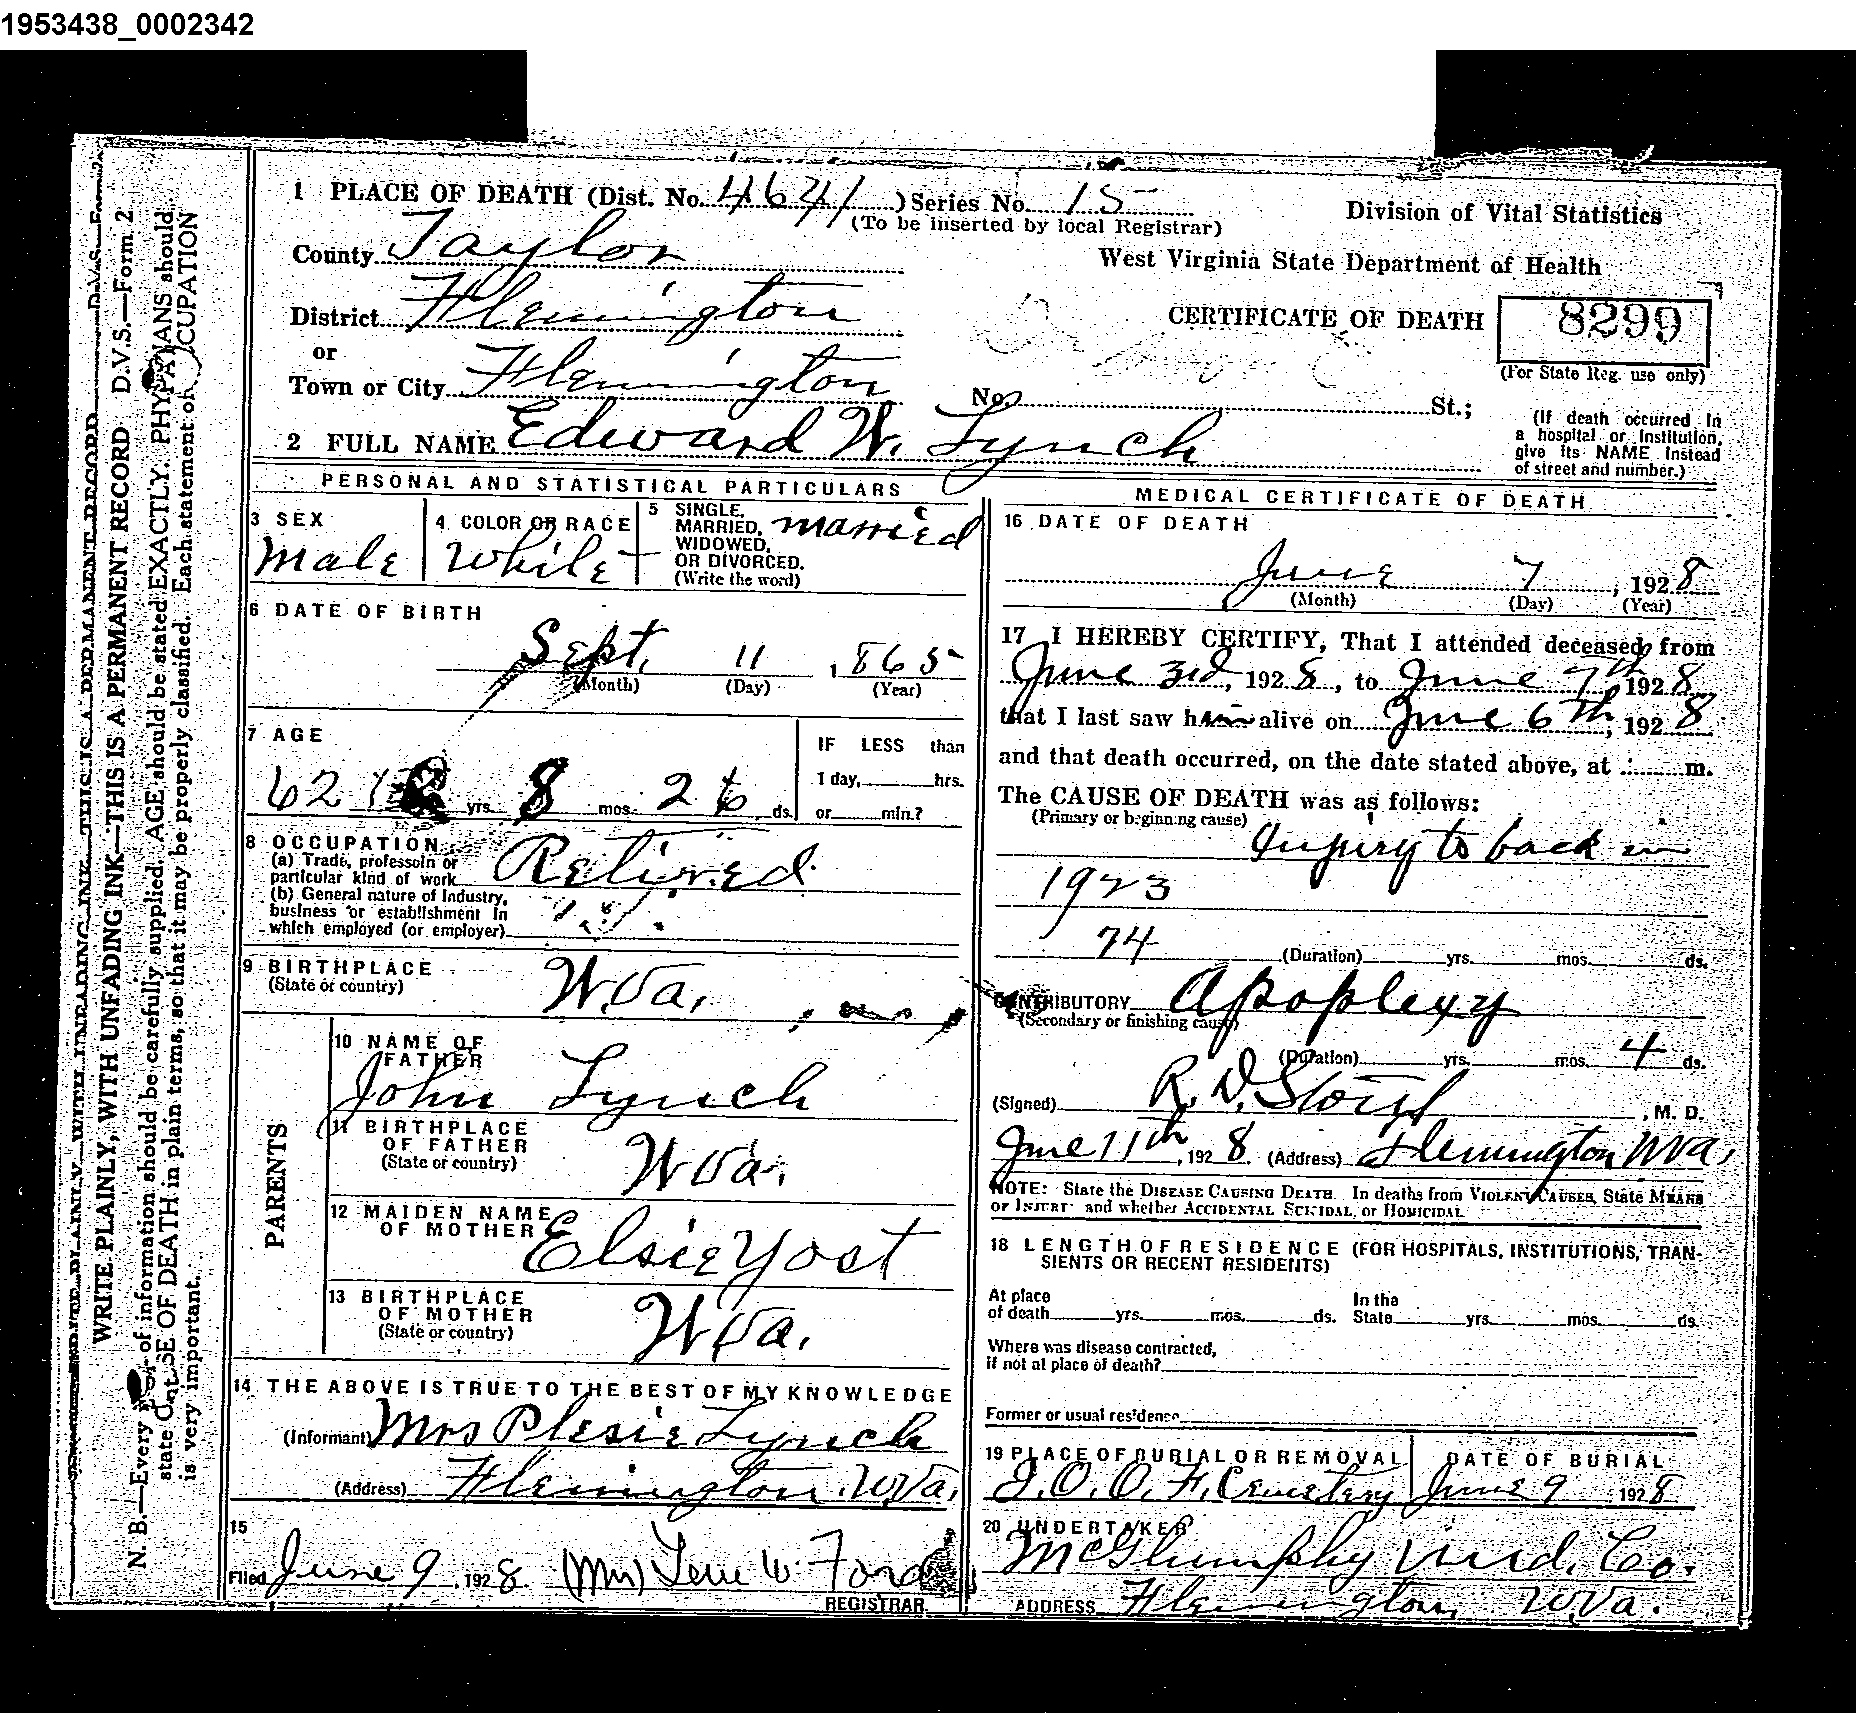 1953438_0002342
1 PLACE OF DEATH (Dist. No. 4641 ) Series No. 15
(To be inserted by local Registrar)
County Taylor
District Flemington
or
Town or City Flemington
No. St.;
2 FULL NAME Edward W. Lynch
Division of Vital Statistics
West Virginia State Department of Health
CERTIFICATE OF DEATH
8299
(For State Reg. use only)
(If death occurred in
a hospital or institution,
give its NAME instead
of street and number.)
PERSONAL AND STATISTICAL PARTICULARS
3 SEX
Male
4 COLOR OR RACE
White
5 SINGLE,
MARRIED,
WIDOWED,
OR DIVORCED.
(Write the word)
married
6 DATE OF BIRTH
Sept. 11 , 1865
(Month) (Day) (Year)
7 AGE
62 yrs. 8 mos. 26 ds.
IF LESS than
1 day, hrs.
or min.?
8 OCCUPATION
(a) Trade, professoin or
particular kind of work
Retired
(b) General nature of Industry,
business or establishment in
which employed (or employer)
9 BIRTHPLACE
(State or country)
W.Va.
PARENTS
10 NAME OF
FATHER
John Lynch
11 BIRTHPLACE
OF FATHER
(State or country)
W Va.
12 MAIDEN NAME
OF MOTHER
Elsie Yost
13 BIRTHPLACE
OF MOTHER
(State or country)
W Va.
14 THE ABOVE IS TRUE TO THE BEST OF MY KNOWLEDGE
(Informant) Mrs Plesie Lynch
(Address) Flemington, W.Va.
15
Filed June 9, 1928 (Mrs) W. Ford
REGISTRAR
MEDICAL CERTIFICATE OF DEATH
16 DATE OF DEATH
June 7, 1928
(Month) (Day) (Year)
17 I HEREBY CERTIFY, That I attended deceased from
June 3rd, 1928, to June 7th 1928
that I last saw him alive on June 6th, 1928
and that death occurred, on the date stated above, at m.
The CAUSE OF DEATH was as follows:
(Primary or beginning cause)
Injury to back in
1923
74
(Duration) yrs. mos. ds.
CONTRIBUTORY Apoplexy
(Secondary or finishing cause)
(Duration) yrs. mos. 4 ds.
(Signed) R. D. , M. D.
June 11th, 1928. (Address) Flemington W Va.
NOTE: State the DISEASE CAUSING DEATH. In deaths from VIOLENT CAUSES, State MEANS
OF INJURY and whether ACCIDENTAL SUICIDAL, or HOMICIDAL
18 LENGTH OF RESIDENCE (FOR HOSPITALS, INSTITUTIONS, TRAN-
SIENTS OR RECENT RESIDENTS)
At place
of death yrs. mos. ds.
In the
State yrs. mos. ds.
Where was disease contracted,
if not at place of death?
Former or usual residence
19 PLACE OF BURIAL OR REMOVAL
I.O.O.F. Cemetery
DATE OF BURIAL
June 9 , 1928
20 UNDERTAKER
McGlumphy Und. Co.
ADDRESS Flemington, W.Va.
WRITE PLAINLY, WITH UNFADING INK—THIS IS A PERMANENT RECORD D.V.S.—Form 2
N. B.—Every of information should be carefully supplied. AGE should be stated EXACTLY. PHYSICIANS should
state CAUSE OF DEATH in plain terms, so that it may be properly classified. Each statement on OCCUPATION
is very important.